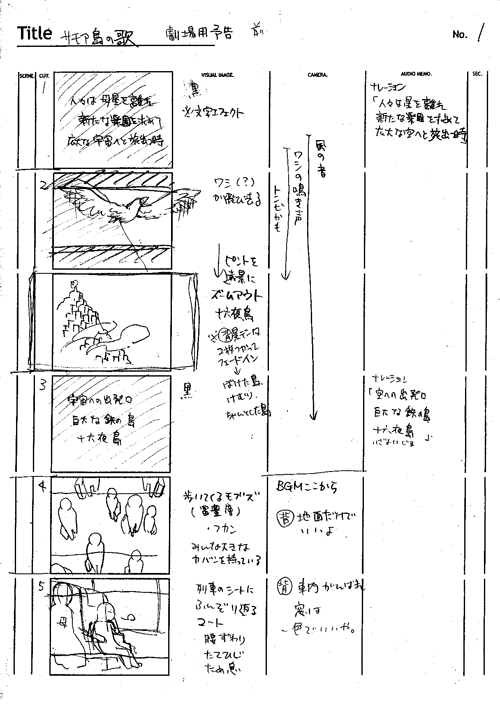 Title サモア島の歌 劇場用予告 前 No. 1
SCENE. CUT. VISUAL IMAGE. CAMERA. AUDIO MEMO. SEC.
1
人々は母星を離れ
新たな楽園を求めて
広大な宇宙へと旅出つ時
黒
※文字エフェクト
ナレーション
「人々は星を離れ
新たな楽園を求めて
広大な空へと旅出つ時」
2
ワシ(?)
が飛び去る
トンビかも
ワシの鳴き声
風の音
ピントを
遠景に
ズームアウト
十六夜島
2枚つかって
フェードイン
ぼけた島、
けむり、
ちゃんとした島
3
宇宙への出発口
巨大な鉄の島
十六夜島
黒
ナレーション
「空への出発口
巨大な鉄の島
十六夜島」
いざよいじま
4
歩いてくるモブズ
・フカン
みんな大きな
カバンを持っている
BGMここから
背 地面だけで
いいよ
5
母
列車のシートに
ふんぞり返る
コート
腰ずわり
たてひじ
ため息
背 車内がんばれ
窓は
一色でいいや。